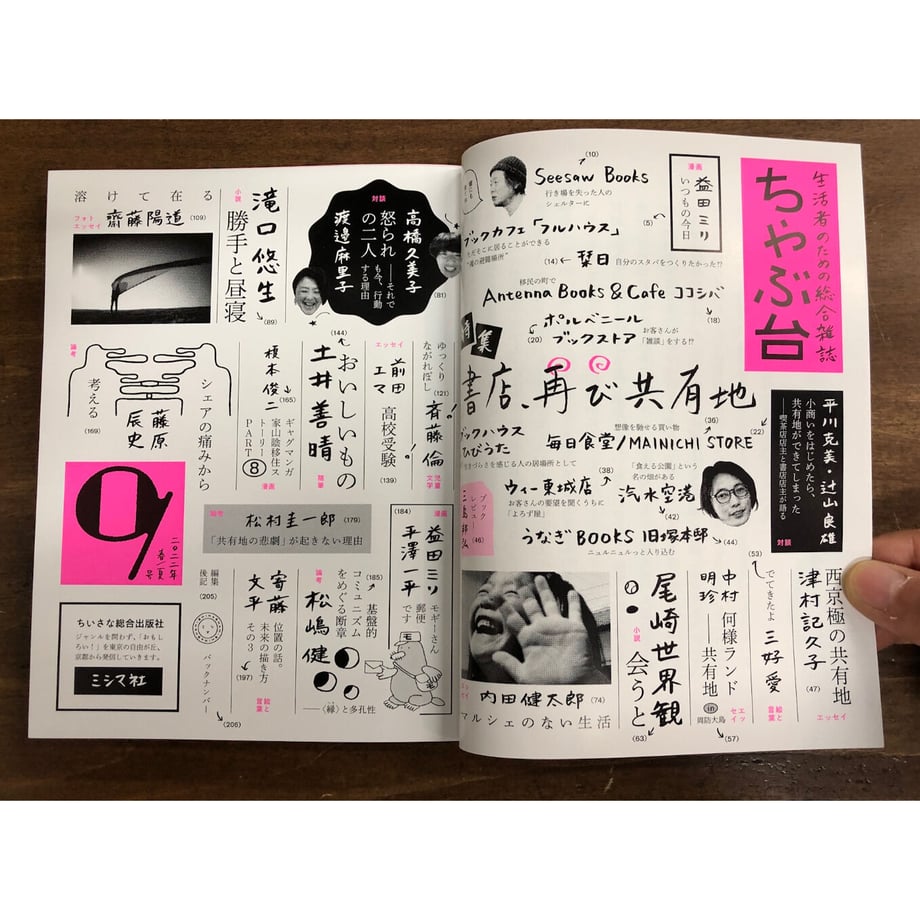 生活者のための総合雑誌
ちゃぶ台
漫画
益田ミリ
いつもの今日
(5)
(10)
Seesaw Books
行き場を失った人の
シェルターに
ブックカフェ「フルハウス」
ただそこに居ることができる
“魂の避難場所”
(14)
栞日
自分のスタバをつくりたかった!?
移民の町で
Antenna Books & Cafe ココシバ
(18)
ポルベニール
ブックストア
(20)
お客さんが
「雑談」をする!?
特集
書店、再び共有地
(36)
想像を馳せる買い物
毎日食堂/MAINICHI STORE
(22)
ブックハウス
ひびうた
生きづらさを感じる人の居場所として
(38)
ウィー東城店
お客さんの要望を聞くうちに
「よろず屋」
「食える公園」という
名の畑がある
汽水空港
(42)
うなぎBOOKS 旧塚本邸
ニュルニュルっと入り込む
(44)
ブックレビュー
(46)
平川克美・辻山良雄
小商いをはじめたら、
共有地ができてしまった
――喫茶店店主と書店店主が語る
対談
(53)
西京極の共有地
津村記久子
(47)
エッセイ
でてきたよ
三好愛
絵と言葉
中村明珍
何様ランド
共有地
in
周防大島
エッセイ
(57)
尾崎世界観
小説
会うと
(63)
エッセイ
内田健太郎
(74)
マルシェのない生活
対談
高橋久美子
(81)
怒られの二人
――それでも今、行動する理由
渡邊麻里子
小説
滝口悠生
勝手と昼寝
(89)
溶けて在る
フォト
エッセイ
齋藤陽道
(109)
ゆっくり
ながれぼし
(121)
斉藤倫
児童文学
エッセイ
前田エマ
高校受験
(139)
(144)
おいしいもの
土井善晴
随筆
榎本俊二
(165)
ギャグマンガ
家山陰移住ス
トーリー
PART⑧
漫画
論考
シェアの痛みから
考える
藤原辰史
(169)
論考
松村圭一郎
(179)
「共有地の悲劇」が起きない理由
漫画
(184)
益田ミリ
平澤一平
モギーさん
郵便
です
(185)
基盤的
コミュニズム
をめぐる断章
論考
松嶋健
――〈縁〉と多孔性
寄藤文平
位置の話。
未来の描き方
その3
(197)
絵と言葉
編集後記
(205)
バックナンバー
(206)
9
二〇二二年
春/夏号
ちいさな総合出版社
ジャンルを問わず、「おもし
ろい!」を東京の自由が丘、
京都から発信していきます。
ミシマ社